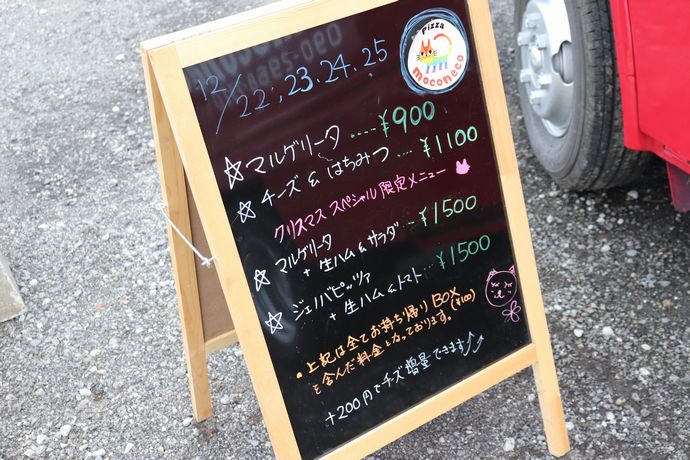 Pizza
moconeco
12/22, 23, 24, 25
☆マルゲリータ ..... ¥900
☆チーズ & はちみつ .... ¥1100
クリスマススペシャル限定メニュー
☆マルゲリータ
+ 生ハム&サラダ ... ¥1500
☆ジェノバピッツァ
+ 生ハム&トマト ... ¥1500
• 上記は全てお持ち帰りBOX(¥100)
を含んだ料金となっております。
+200円でチーズ増量できます